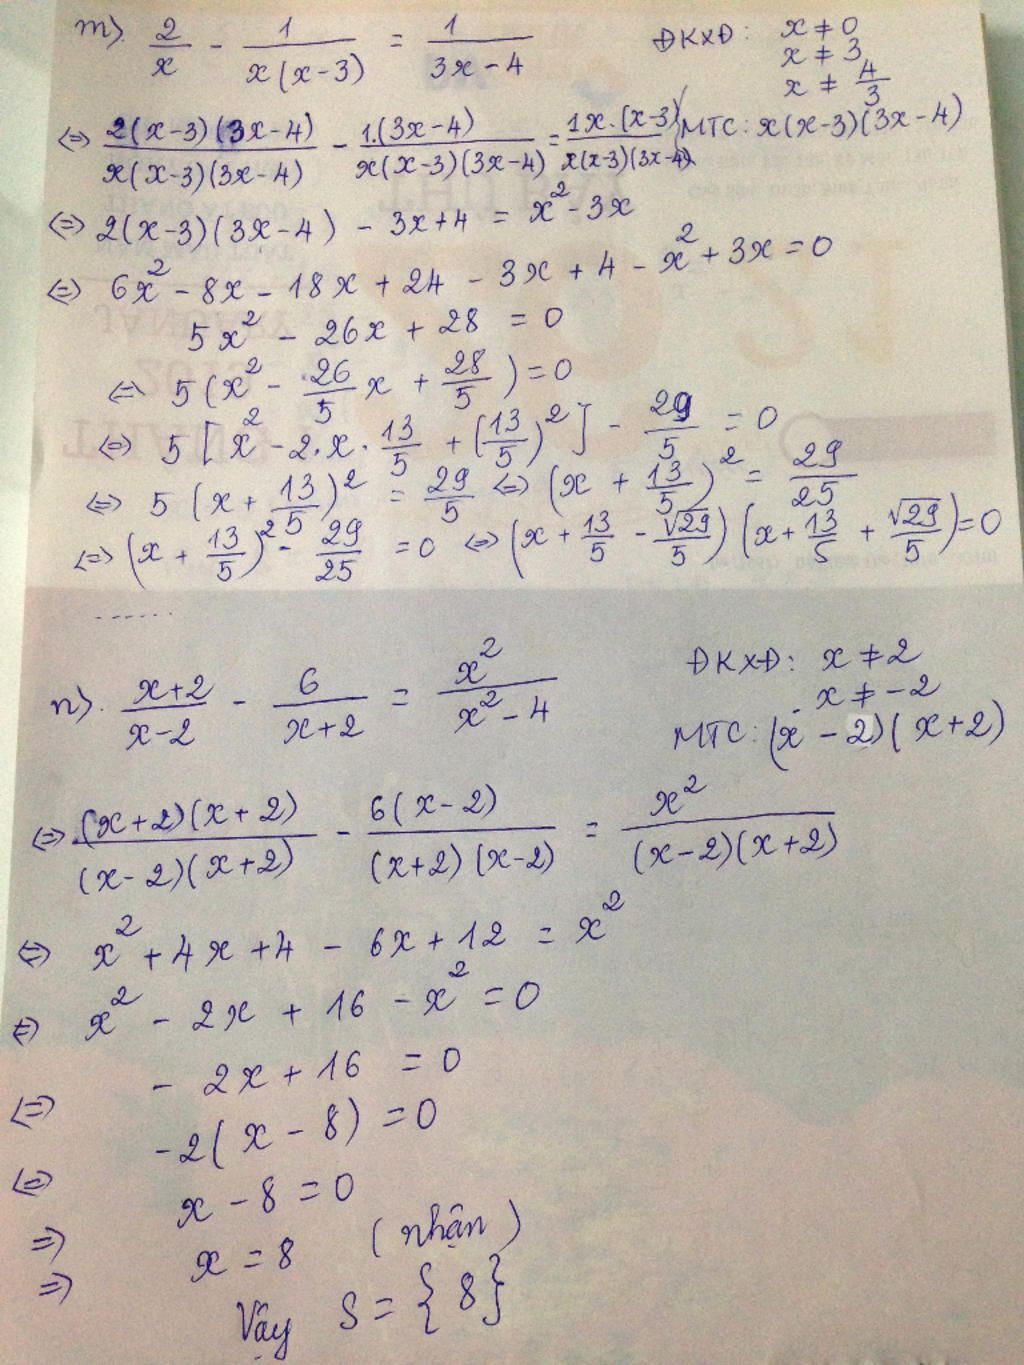 m). 2/x - 1/x(x-3) = 1/3x-4 ĐKXĐ: x ≠ 0
x ≠ 3
x ≠ 4/3
⇔ 2(x-3)(3x-4)/x(x-3)(3x-4) - 1.(3x-4)/x(x-3)(3x-4) = 1x.(x-3)/x(x-3)(3x-4) MTC: x(x-3)(3x-4)
⇔ 2(x-3)(3x-4) - 3x+4 = x² - 3x
⇔ 6x² - 8x - 18x + 24 - 3x + 4 - x² + 3x = 0
5x² - 26x + 28 = 0
⇔ 5(x² - 26/5 x + 28/5) = 0
⇔ 5[x² - 2.x.13/5 + (13/5)²] - 29/5 = 0
⇔ 5(x + 13/5)² = 29/5 ⇔ (x + 13/5)² = 29/25
⇔ (x + 13/5)² - 29/25 = 0 ⇔ (x + 13/5 - √29/5)(x + 13/5 + √29/5) = 0
......
n). x+2/x-2 - 6/x+2 = x²/x²-4 ĐKXĐ: x ≠ 2
x ≠ -2
MTC: (x-2)(x+2)
⇔ (x+2)(x+2)/(x-2)(x+2) - 6(x-2)/(x+2)(x-2) = x²/(x-2)(x+2)
⇔ x² + 4x + 4 - 6x + 12 = x²
⇔ x² - 2x + 16 - x² = 0
- 2x + 16 = 0
⇔ -2(x - 8) = 0
⇔ x - 8 = 0
⇒ x = 8 (nhận)
⇒ Vậy S = {8}